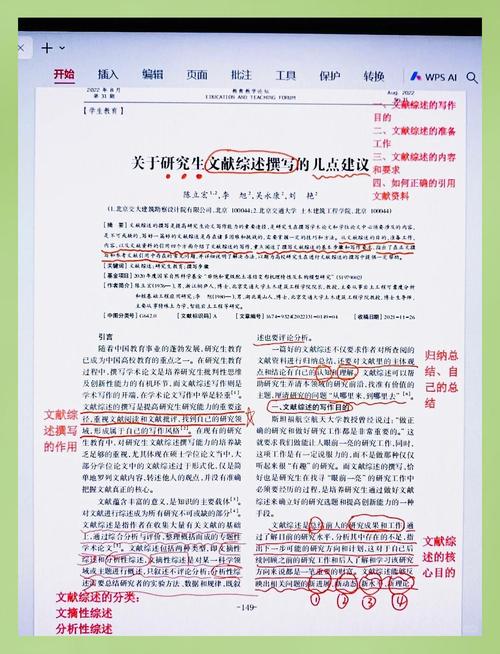 开始 插入 编辑 页面 批注 工具 保护 转换 WPS AI
2022 年 8 月
第 31 期
教育教学论坛
EDUCATION AND TEACHING FORUM
Aug. 2022
【学生教育】
一、文献综述的写作目的
二、文献综述的准备工作
三、文献综述的内容和要求
四、如何正确的引用文献资料
关于研究生文献综述撰写的几点建议
陈立宏1,2,李 旭2,吴永康2,刘 艳2
(1.北京交大建筑勘察设计院有限公司,北京 100044;2.北京交通大学 土木建筑工程学院,北京 100044)
[关键词] 文献综述;研究生教育;撰写步骤
[中图分类号] G642.0 [文献标识码] A [文章编号] 1674-9324(2022)31-0149-04 [收稿日期] 2021-11-26
引言
随着中国教育事业的蓬勃发展,研究生教育
已成为中国高校教育的重点之一。在研究生教育
过程中,撰写学术论文是培养研究生批判性思维
及创新性能力的有机环节,而文献综述写作则是
学术写作的开端,在学术论文写作中举足轻重[1]。
文献综述的撰写是提高研究生研究能力的重要途
径,重视文献阅读和文献批评,找到自己的研究领
域,形成属于自己的写作风格[2]。在现有的研究
生教育中,对研究生文献综述撰写能力的培养缺
乏足够的重视,尤其体现在硕士学位论文当中,大
部分学位论文中的文献综述过于形式化,仅是简
单地罗列文献内容、转述他人的观点,并没有准确
把握文献真正的核心。
文献蕴含丰富的意义,是知识的主要载体[3],
对文献进行综述成为所有研究不可或缺的部分[4]。
文献综述是指作者在收集大量有关文献的基础
上,通过综合分析与评价、整理概括而成的专题性
学术论文[5]。文献综述包括两种类型,即文摘性
综述和分析性综述,文摘性综述是对某一科学领
域或主题进行概述,只叙述不评论分析;分析性综
述需要总结研究者的实验方法、数据和规律,既叙
文献综述撰写的作用
文献综述的分类:
文摘性综述
分析性综述
述也要评论分析。
一篇好的文献综述不仅要求作者对所查阅的
文献资料进行归纳总结,还要对文献里的主体观
点和结论有自己的认知和理解。文献综述可以帮
助研究生弄清本领域的研究前沿,找准有价值的
主题,厘清研究的问题“从哪里来,到哪里去”[6]。
一、文献综述的写作目的
斯坦福航空航天大学教授曾经说过:“做正
确的研究和做好研究工作都是非常重要的。”这
就要求我们能做让人眼前一亮的研究工作,同时,
这项工作是有一定说服力的,而不是做那种仅仅
听起来很“有趣”的研究。而文献综述的撰写,恰
好也是研究生在找寻“眼前一亮”的研究工作中
必须要经历的过程,是培养研究生通过做好文献
综述来确立好的研究选题和提高创新能力的一种
手段。
文献综述是总结前人的研究成果和工作,通
过了解目前的研究水平,分析其中存在的不足,指
出下一步可能的研究方向和计划,这对于自己后
续回顾之前的研究工作和后人了解和学习该研究
方向来说都是一笔重要的财富。文献综述能够反
映出相关问题的新进展、新动态、新水平、新理论
① ② ③ ④
归纳总结、自己的总结
文献综述的核心目的
-149-